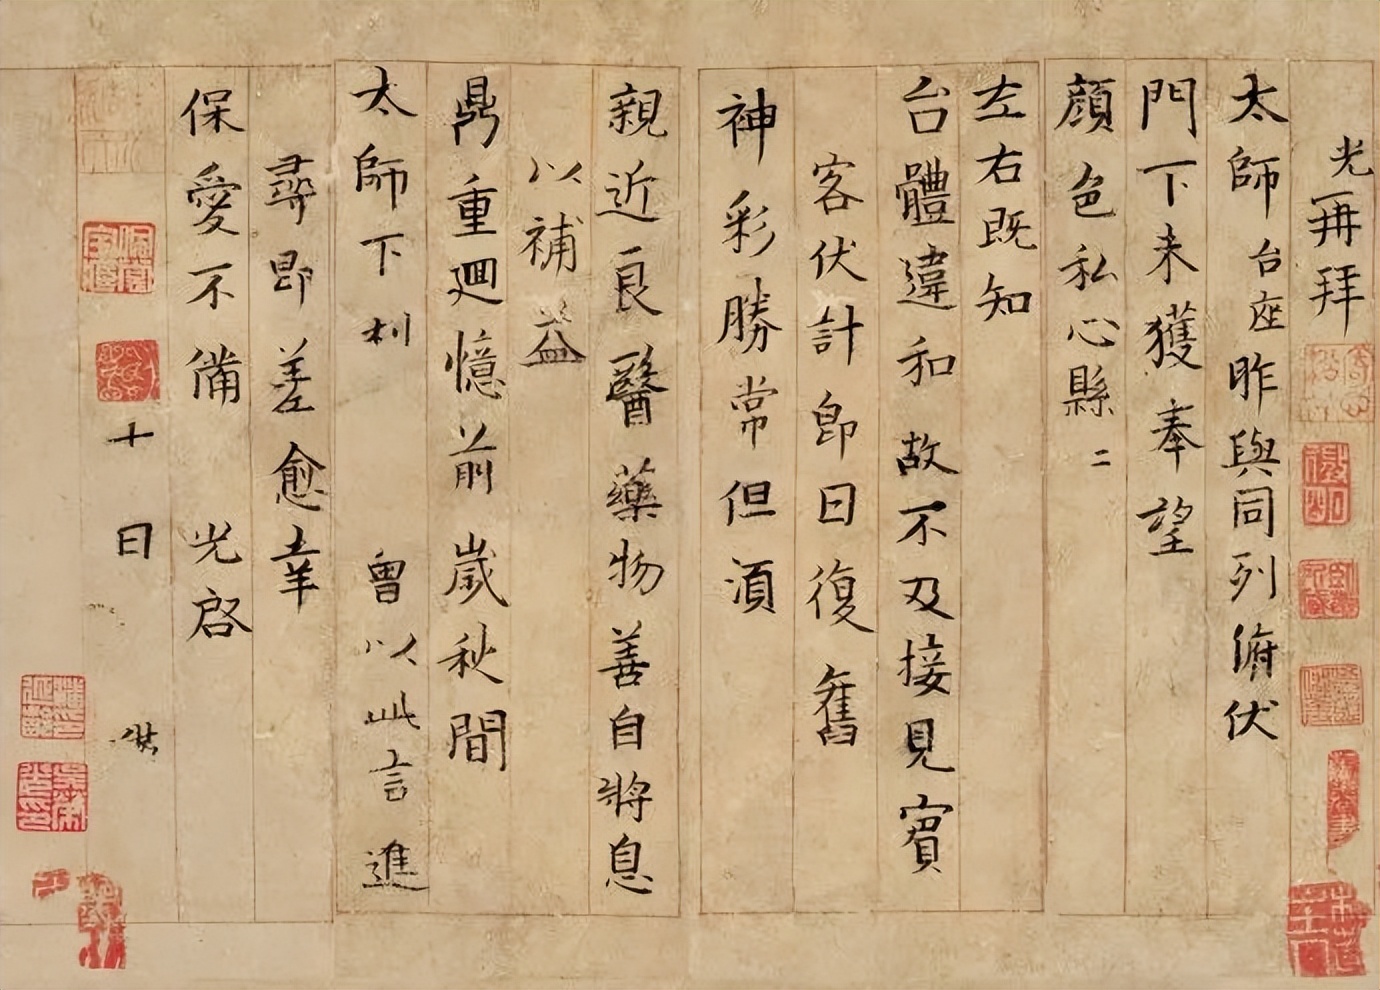 光再拜
太師台座昨與同列俯伏
門下未獲奉望
顏色私心縣二
左右既知
台體違和故不及接見賓
客伏計即日復舊
神彩勝常但須
親近良醫藥物善自將息
以補益
鼎重迴憶前歲秋間
太師下利曾以此言進
尋即差愈幸
保愛不備光啓
十日